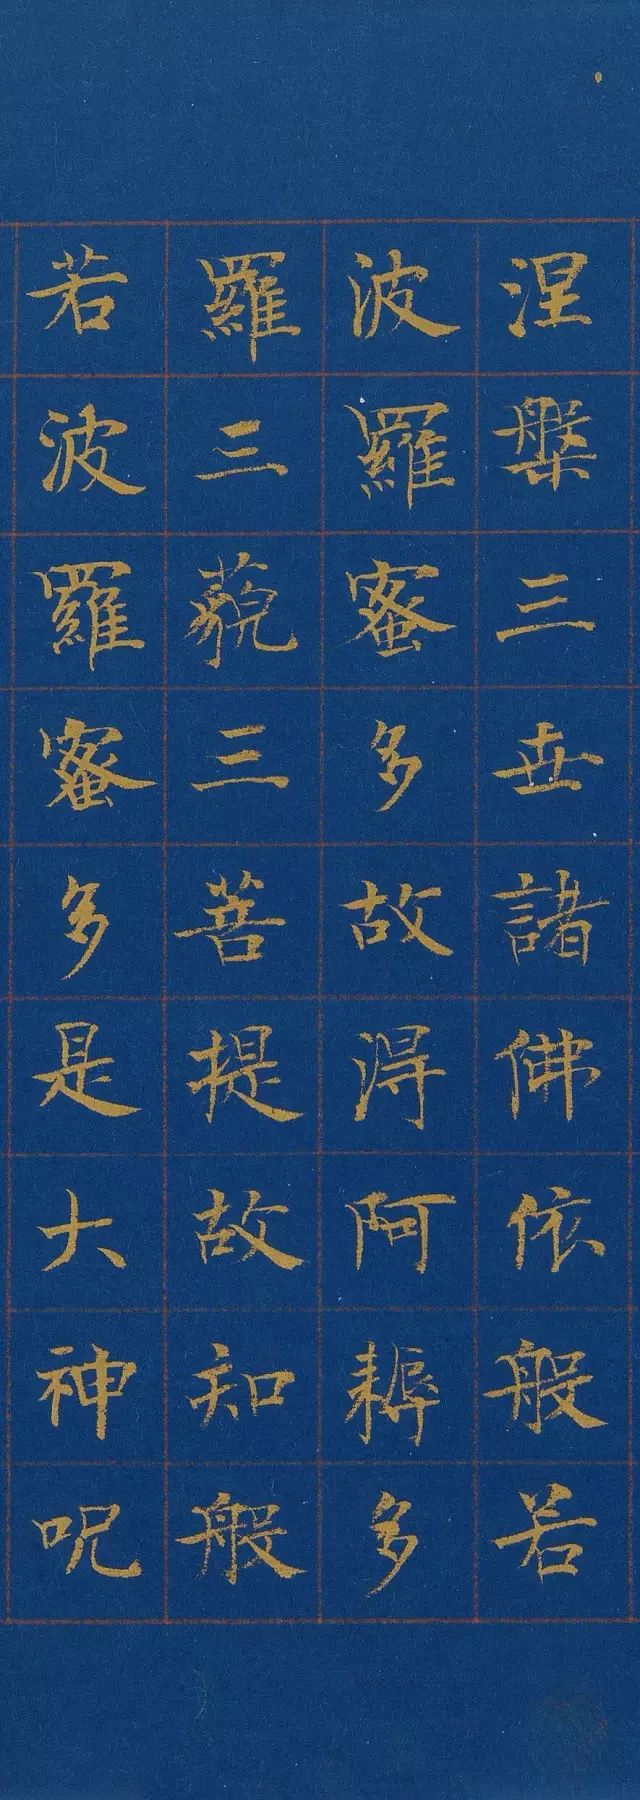 涅槃三世諸佛依般若
波羅蜜多故得阿耨多
羅三藐三菩提故知般
若波羅蜜多是大神呪